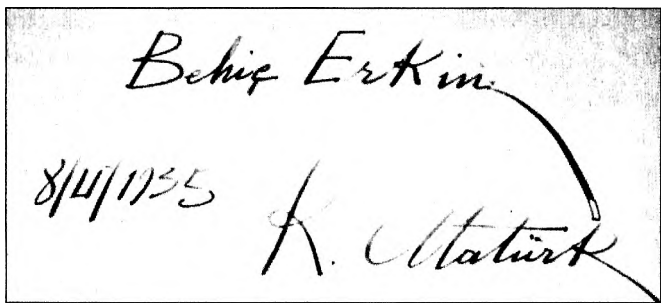 Behiç Erkin
8/II/1935
K. Atatürk